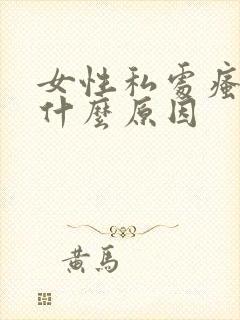 女性私處瘙
什麼原因
黃馬